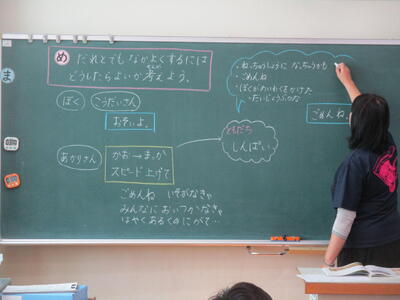 め だれとでもなかよくするには
どうしたらよいか考えよう。
ま
ぼく こうだいさん
おそいよ。
あかりさん
かお→まっか
スピード上げて
ともだち
しんぱい。
ごめんね いそがなきゃ
みんなにおいつかなきゃ
はやくあるくのにがて…
・ねっちゅうしょうに なっちゃうかも
・ごめんね
・ぼくがめいわくをかけた
・だいじょうぶかな
ごめんね。